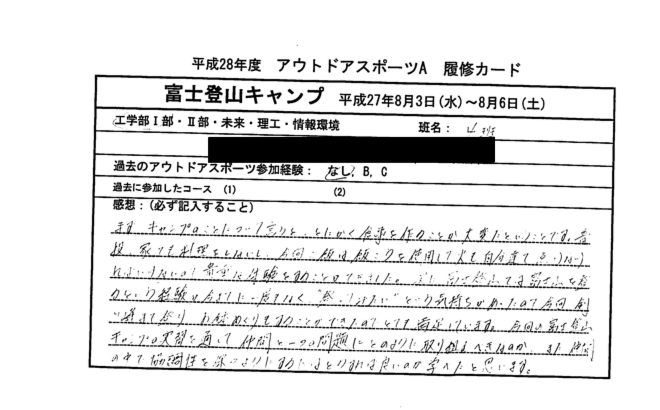 平成28年度 アウトドアスポーツA 履修カード
富士登山キャンプ 平成27年8月3日(水)～8月6日(土)
工学部Ⅰ部・Ⅱ部・未来・理工・情報環境 班名: 4班
過去のアウトドアスポーツ参加経験:なし, B, C
過去に参加したコース (1) (2)
感想:(必ず記入すること)
まず キャンプのことについて言うと、とにかく食事を作ることが大変だということです。普
段、家でも料理をしないし、今回、飯は飯ごうを使用して火も自分達で
貴重な体験をすることができました。富士登山では富士山を登
るという経験は今までに一度もなく "登ってみたい" という気持ちがあったので今回
登り お鉢めぐりをすることができたのでとても満足しています。今回の富士登山
キャンプの実習を通して 仲間と一つの問題にどのように取り組むべきなのか、また 仲間
の中で協調性を するにはどうすれば良いのか学べたと思います。